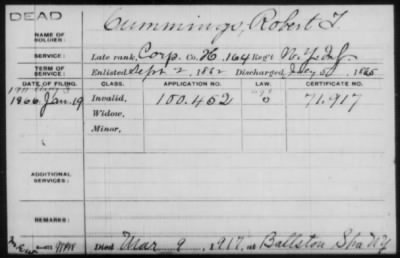 DEAD
NAME OF SOLDIER: Cummings, Robert T.
SERVICE: Late rank, Corp. Co. H, 164 Reg't N.Y. Inf.
TERM OF SERVICE: Enlisted Sept 2, 1862 Discharged July 1865
DATE OF FILING. CLASS. APPLICATION NO. LAW. CERTIFICATE NO.
1866 Jan. 19 Invalid, 100.452 71.917
Widow,
Minor,
ADDITIONAL SERVICES:
REMARKS:
Died Mar 9, 1917, at Ballston Spa NY